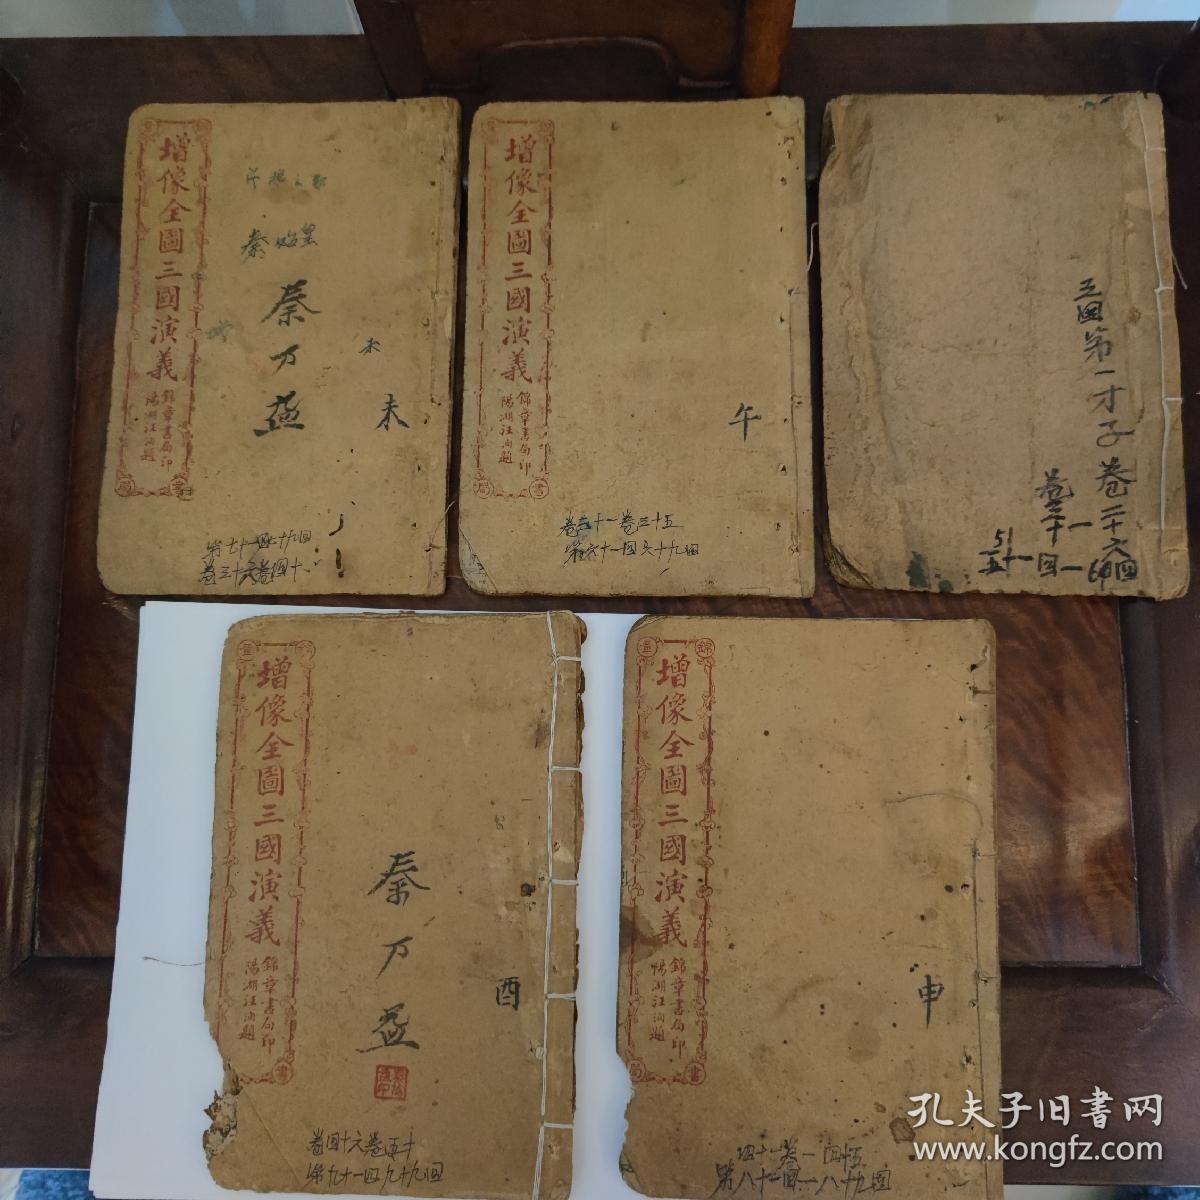 增像全圖三國演義
錦章書局印
陽湖汪洵題
秦始皇
秦万益
未
未
第七十一回七十九回
卷三十六卷四十
增像全圖三國演義
錦章書局印
陽湖汪洵題
午
卷三十一卷三十五
第六十一回六十九回
三国第一才子卷二十六
卷三十
51
五十一回一60回
增像全圖三國演義
錦章書局印
陽湖汪洵題
秦万益
酉
卷四十六卷五十
第九十一回九十九回
增像全圖三國演義
錦章書局印
陽湖汪洵題
申
四十一卷一四十五
第八十一回一八十九回
孔夫子旧书网
www.kongfz.com